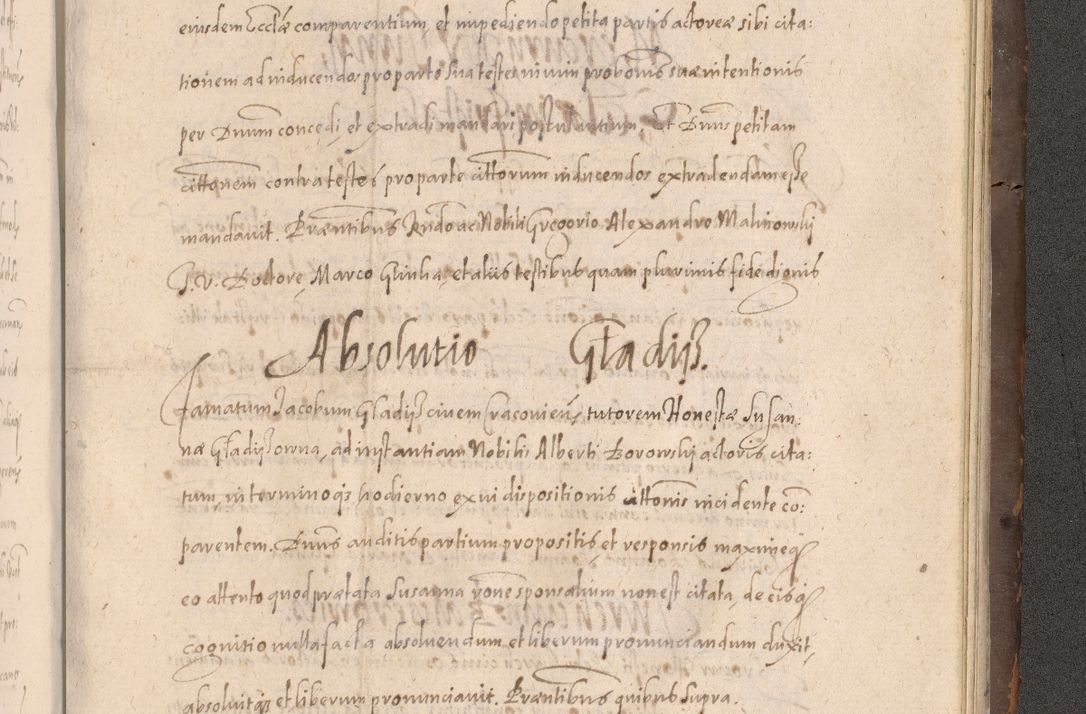 eiusdem Eccłæ comparentium, et impediendo petita partis actoreæ sibi cita:
tionem ad inducendos pro parte sua testes in vim probõnis suæ intentionis
per Dnum concedi et extradi mandari postulantium. Et Dnus petitam
cittonem contra testes pro parte cittorum inducendos extradendam esse
mandavit. Præntibus Rndo ac Nobili Gregorio Alexandro Malinowsky
J. V. Doctore, Marco Giulia, et aliis testibus quam plurimis fide dignis
Absolutio Gładisz.
Famatum Jacobum Gładisz civem Cracovien̄ tutorem Honestæ Susan:
næ Gładiszowna, ad instantiam Nobilis Alberti Borowsky actoris cita:
tum, in termino qs hodierno ex vi dispositionis cittonis incidente co:
parentem. Dnus auditis partium propositis et responsis maximeq
eo attento quod prætata Susanna rõne sponsalium non est citata, de eisq
cognitio nulla facta absolvendum et liberum pronunciandum duxit,
absolvitqs et liberum pronunciavit. Præntibus quibus supra.